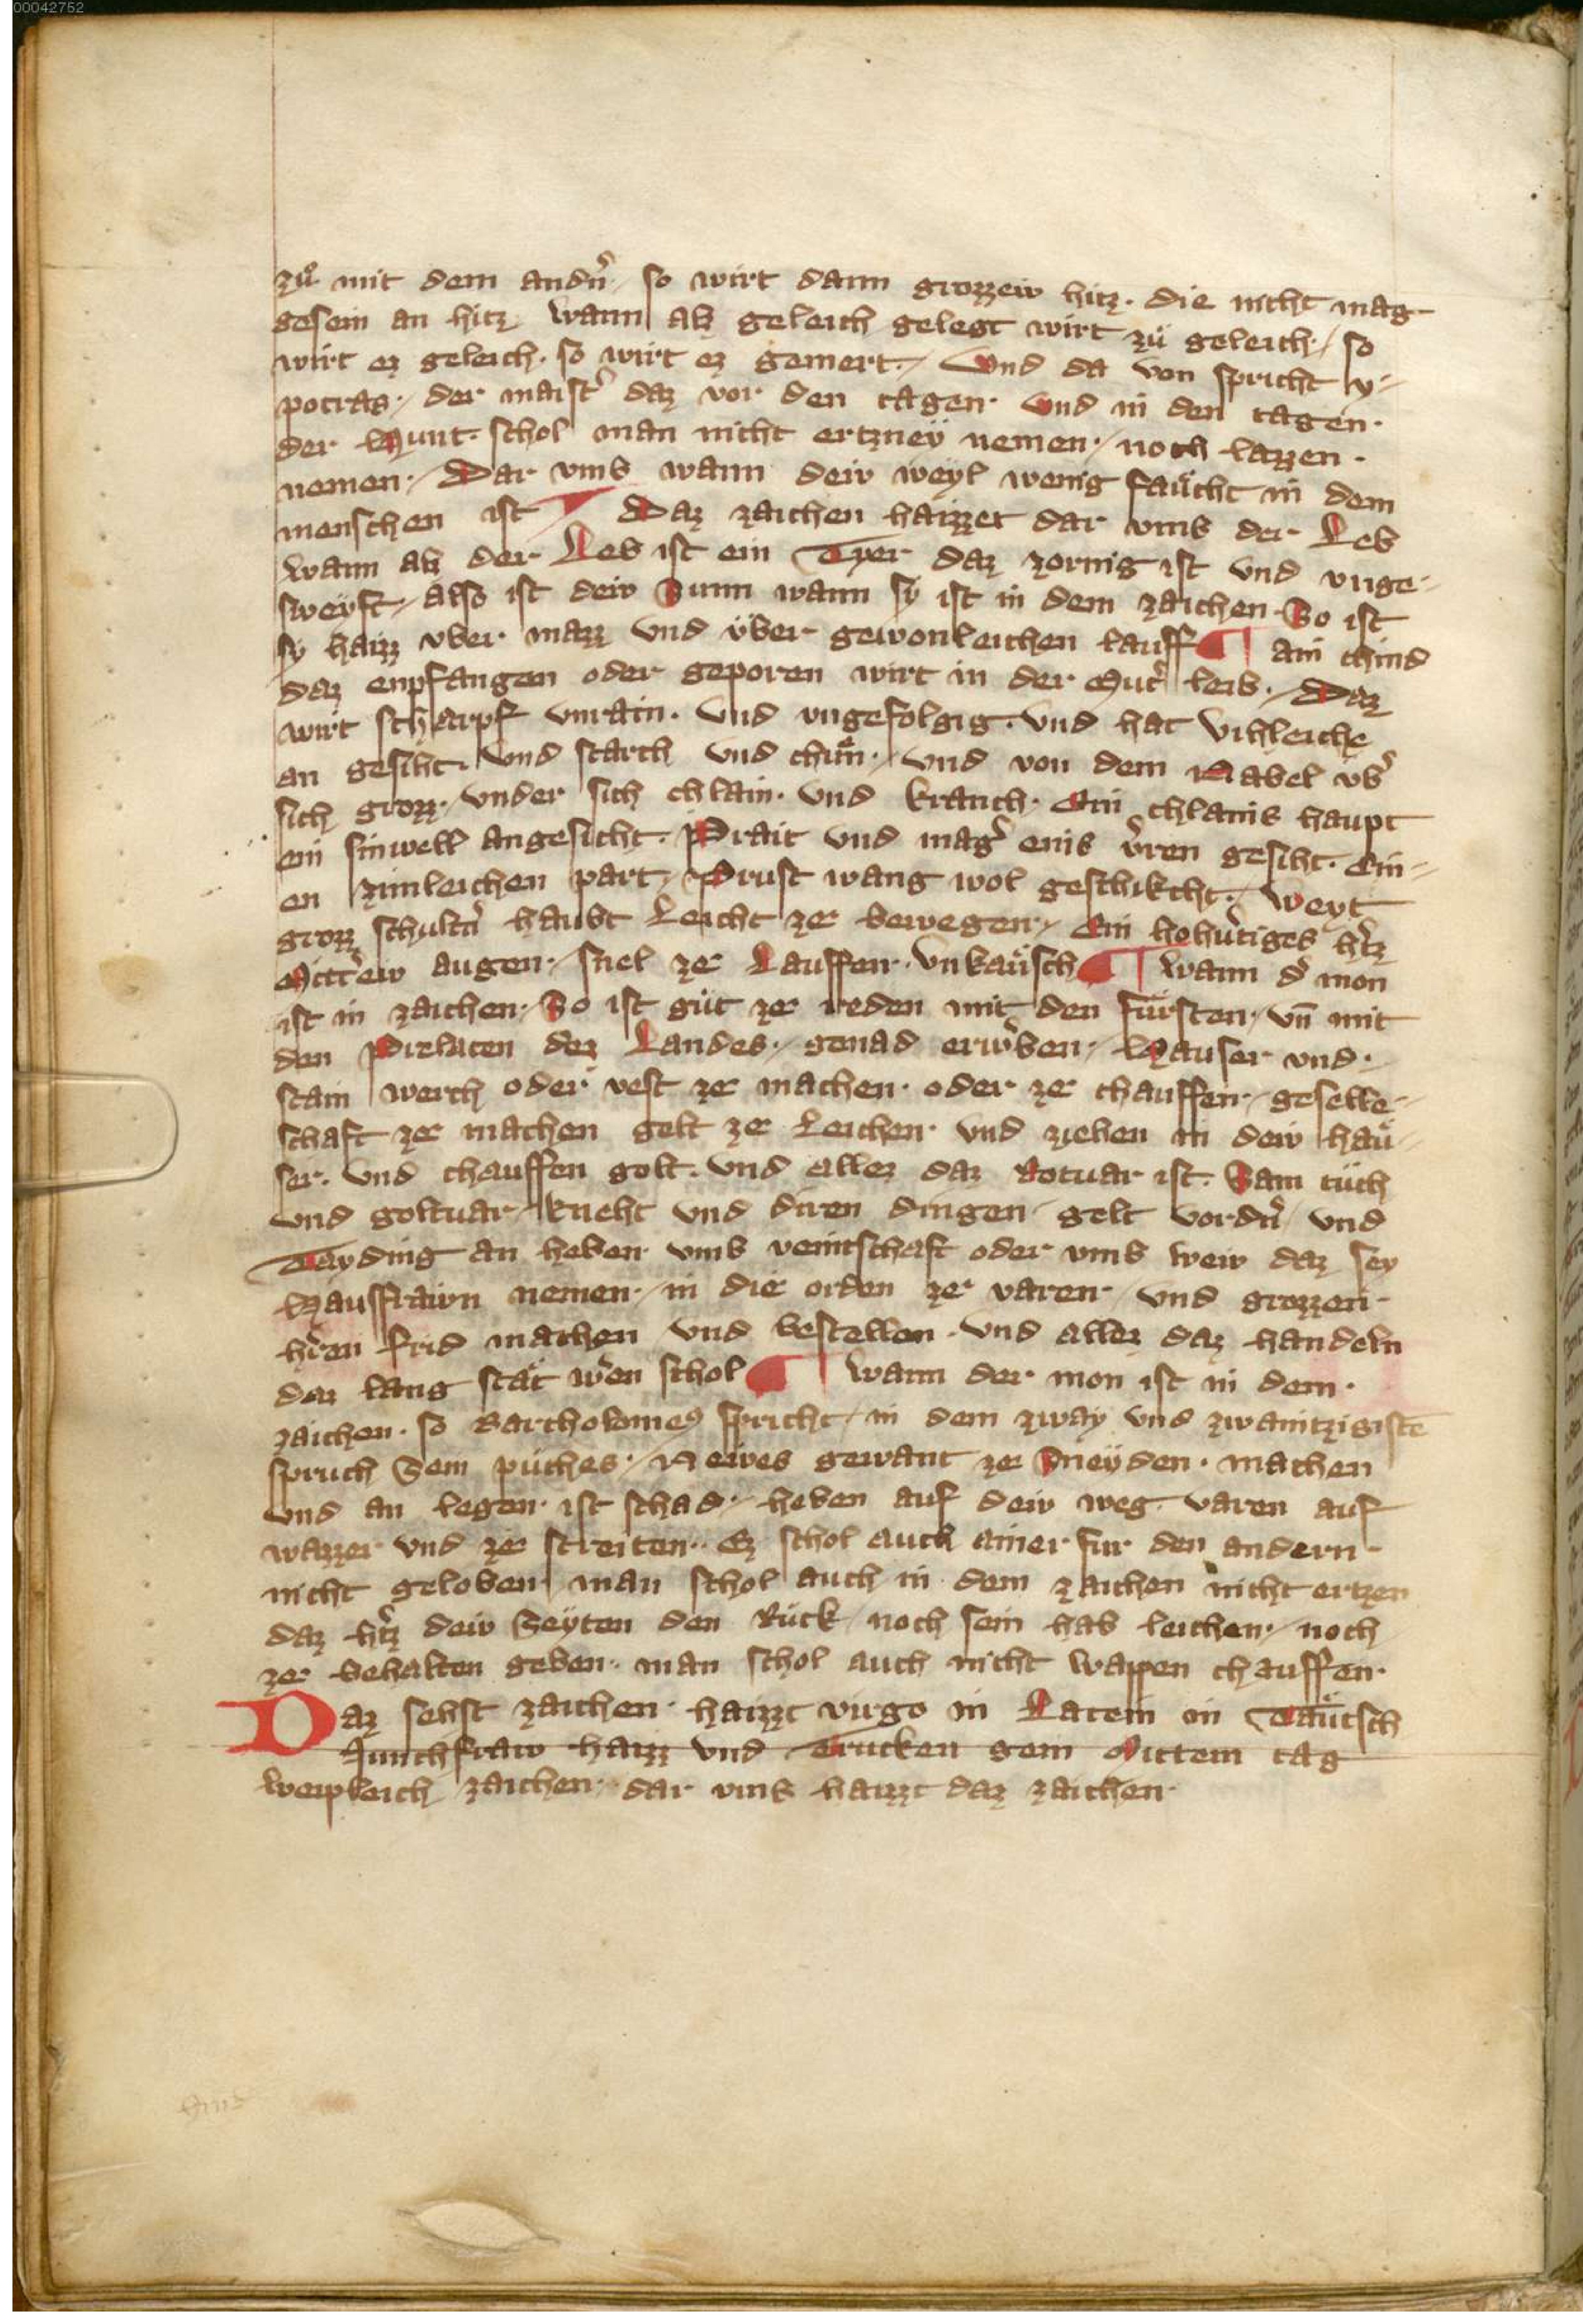 00042752
zů mit dem andn̄ so wirt dann grozzew hitz. die nicht mag
gesein an hitz wann alz geleich gelegt wirt zů geleich / so
wirt ez geleich. so wirt ez gemert. / Vnd da von spricht y=
pocras. / der maist͛ daz vor den tagen. vnd in den tagen.
der Hunt. schol man nicht ertzneÿ nemen. / noch lazzen.
nemen. / Dar vmb wann dew weyl wenig faücht in dem
menschen ist ¶ Daz zaichen haizzet dar vmb der Leb
wann alz der Leb ist ein Tyer daz zornig ist vnd vnge=
sweyft / also ist dew Sunn wann sÿ ist in dem zaichen. So ist
sÿ haizz vber mazz vnd vber gewonleichen lauff ¶ ain chind
daz enpfangen oder geporen wirt in der Mut͛ leib. / Daz
wirt scharpf vnrain. vnd vngefolgig. vnd hat vihleiche
an gesiht. vnd starch vnd chün. / vnd von dem Nabel vb͛
sich grozz. vnder sich chlain. vnd kranch. Ein chlains haupt
ein sinwell angesicht. Prait vnd mag͛ enis v͛ren gesiht. Ein=
en zimleichen part / Prust wang wol geschikcht. / Weyt
grozz schult͛n haubt Leicht ze bewegen. / Ein hohutiges h͛tz
Mitt͛ew augen. / snel ze Lauffen. vnkaüsch ¶ wann d͛ mon
ist in zaichen. So ist güt ze reden mit den fürsten. vn̄ mit
den Prelaten dez Landes. / genad erw͛ben. / Hauser vnd.
stain werch oder vest ze machen. oder ze chauffen. / geselle=
schaft ze machen gelt ze Leichen. vnd ziehen in dew haü=
ser. vnd chauffen golt. vnd allez daz rotuar ist. Sam tüch
vnd goltuar / kneht vnd diren dingen / gelt vord͛n vnd
Tayding an heben vmb veintschaft oder vmb wew daz sey
Hausfrawn nemen. / in die orden ze varen. vnd grozzen
h͛ren frid machen vnd bestellen. vnd allez daz handeln
daz lang stät w͛en schol ¶ wann der mon ist in dem.
zaichen. so Bartholomeꝰ spricht / in dem zway vnd zwaintzigistē
spruch Seim püches. / Newes gewant ze Sneÿden. machen
vnd an legen. ist schad. / heben auf dew weg. varen auf
wazzer vnd ze streiten. Ez schol auch ainer fur den andern
nicht geloben. man schol auch in dem zaichen nicht ertzen
daz h͛tz dew Seÿten den Rück / noch sein hab leichen. / noch
ze behalten geben. man schol auch nicht wappen chauffen.
Daz sehst zaichen. haizzt virgo in Latein in Taütsch
Junchfraw haizz vnd Trucken gem Mittem tag
weipleich zaichen. dar vmb haizzt daz zaichen.